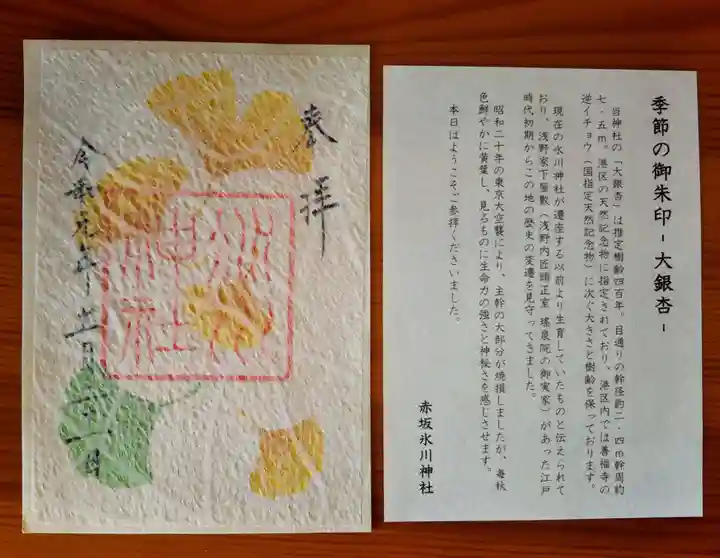 奉拝
氷川神社
令和元年十一月二十一日
季節の御朱印-大銀杏-
当神社の「大銀杏」は推定樹齢四百年。目通りの幹径約二・四m幹周約
七・五m。港区の天然記念物に指定されており、港区内では善福寺の
逆イチョウ(国指定天然記念物)に次ぐ大きさと樹齢を保っております。
現在の氷川神社が遷座する以前より生育していたものと伝えられて
おり、浅野家下屋敷(浅野内匠頭正室 瑤泉院の御実家)があった江戸
時代初期からこの地の歴史の変遷を見守ってきました。
昭和二十年の東京大空襲により、主幹の大部分が焼損しましたが、毎秋
色鮮やかに黄葉し、見るものに生命力の強さと神秘さを感じさせます。
本日はようこそご参拝くださいました。
赤坂氷川神社